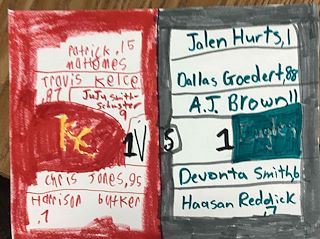 Patrick, 15
mahomes
Travis Kelce
,87
JuJu Smith-
Schuster
9
KC
1
Chris Jones, 95
Harrison butker
,7
V
S
Jalen Hurts, 1
Dallas Goedert, 88
A.J. Brown 11
1
Eagles
Devonta Smith, 6
Haasan Reddick
,7